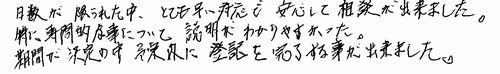 日数が限られた中、とても早い対応で安心して相談が出来ました。
特に専門的な事について説明がわかりやすかった。
期間が決定の中予定内に登記を完了する事が出来ました。